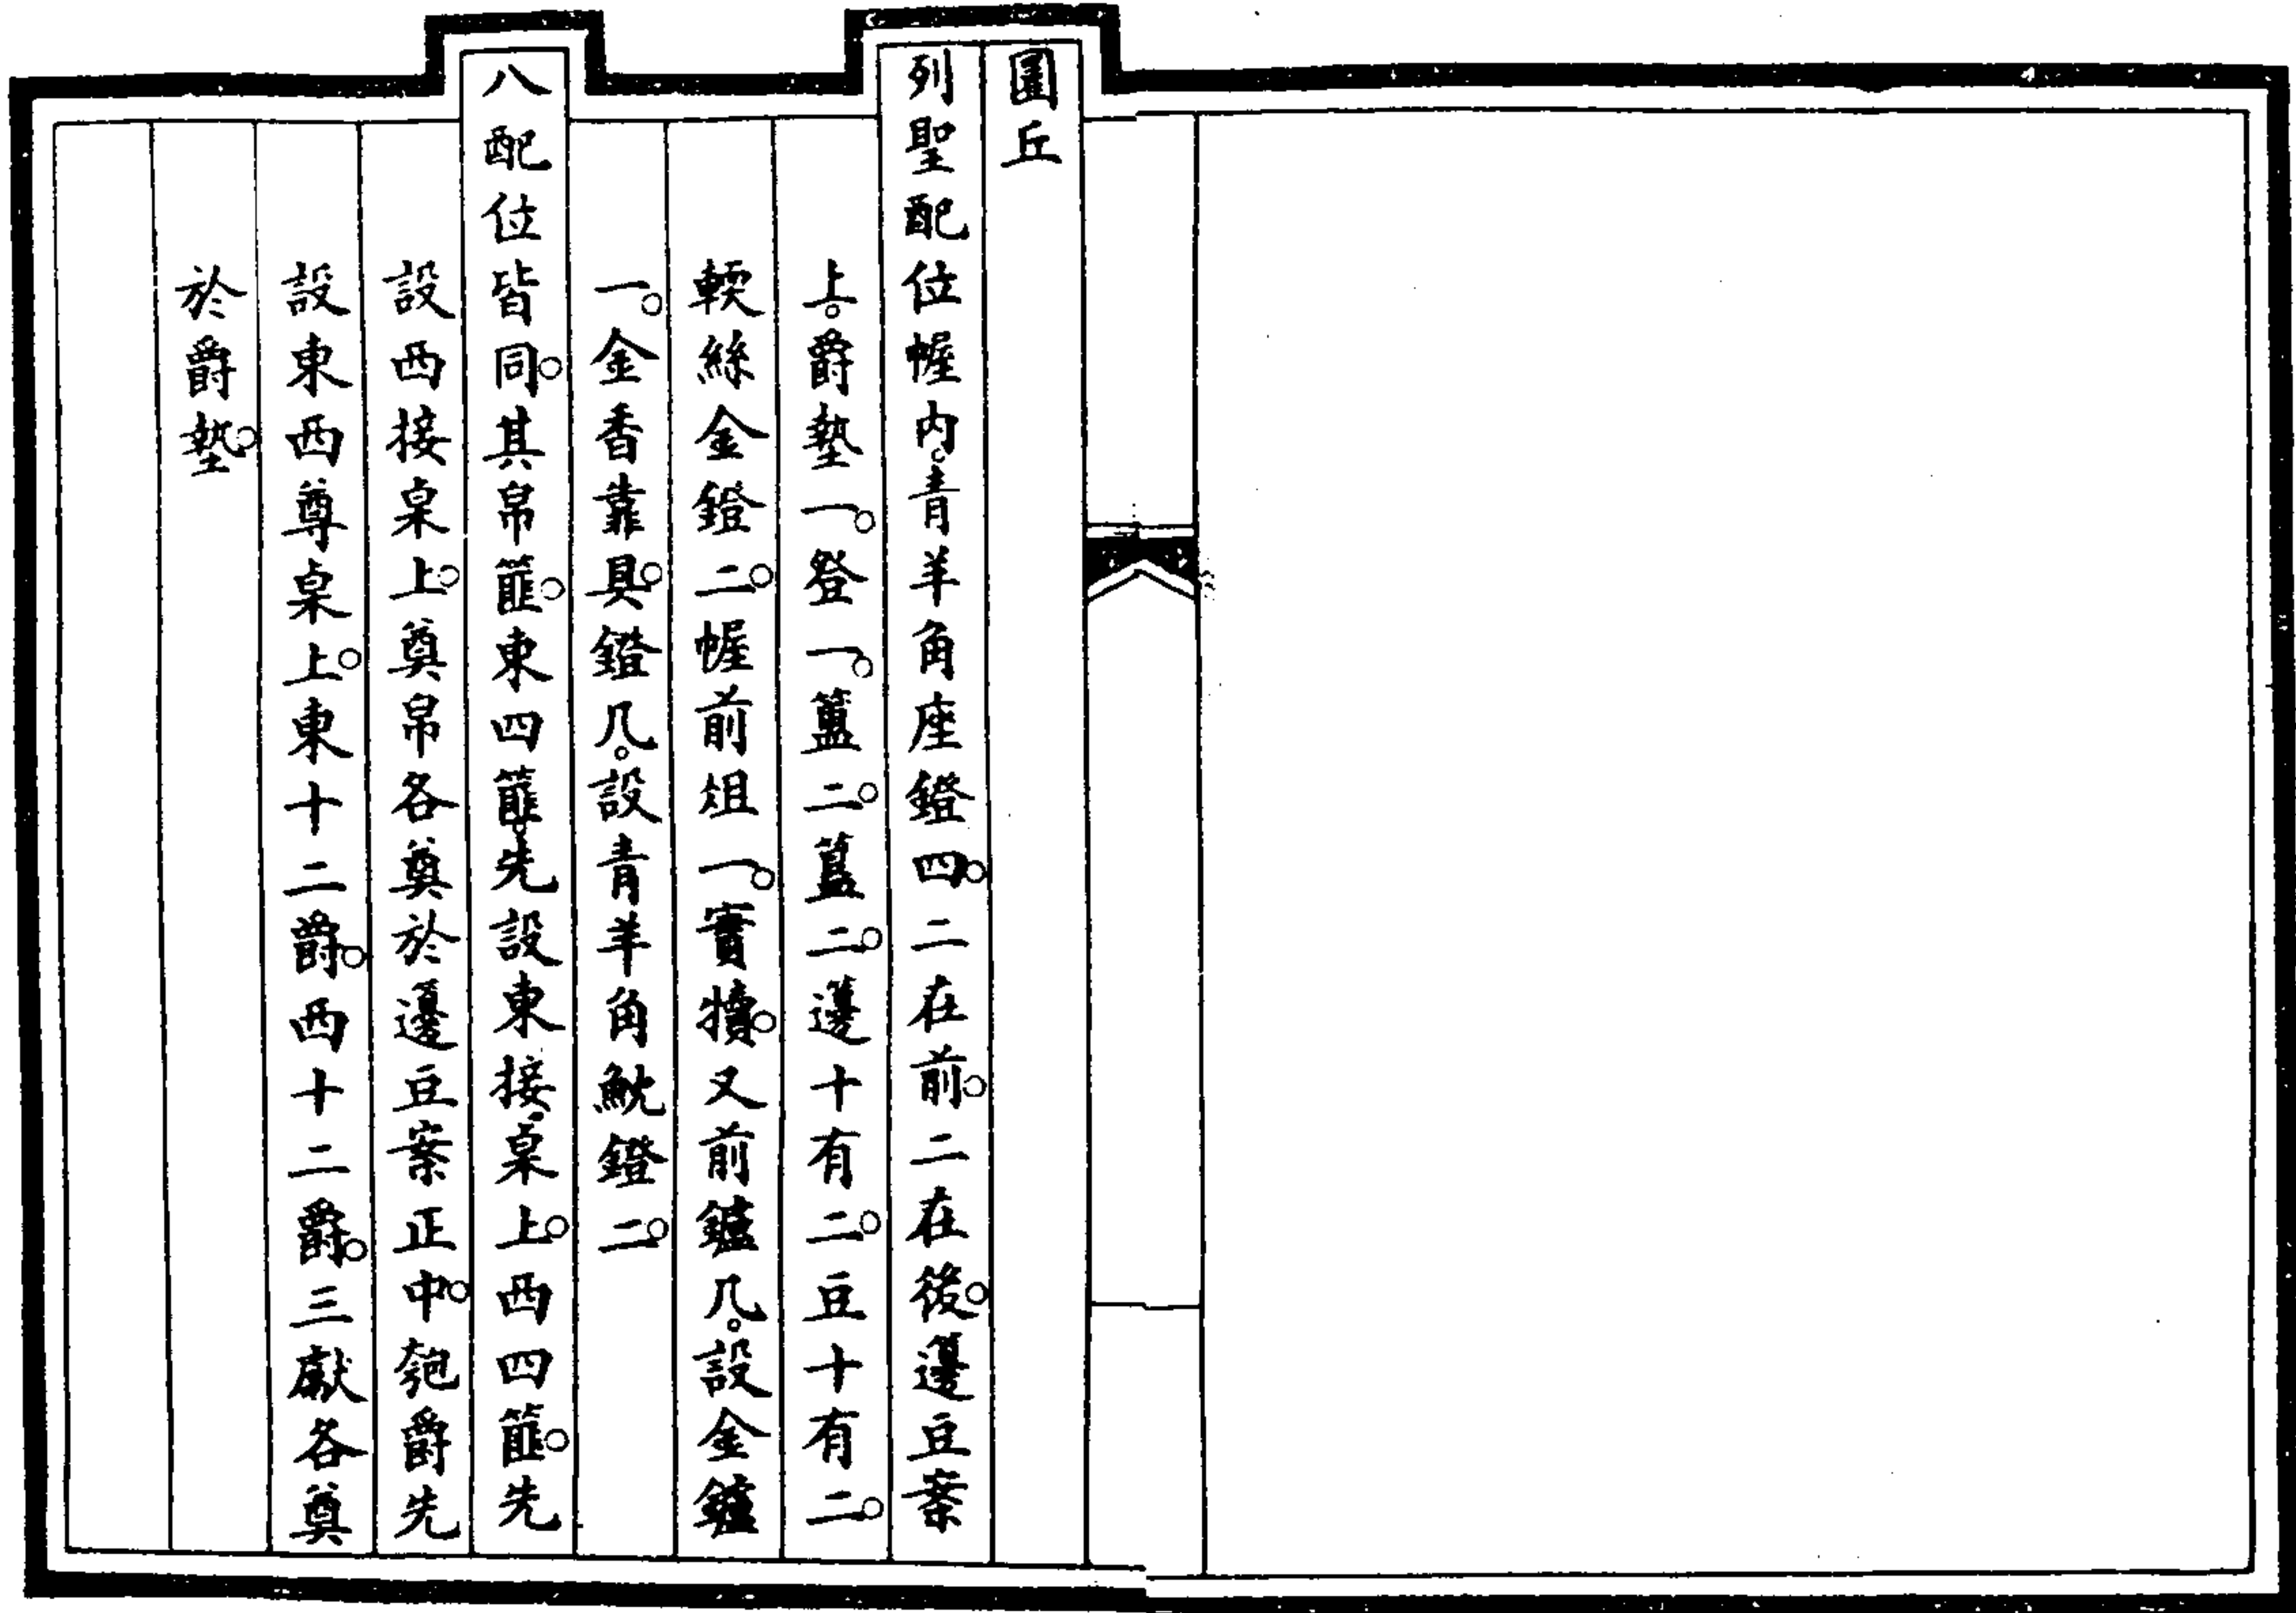 圜丘
列聖配位幄内。青羊角座鐙四。二在前。二在後。籩豆案
上。爵墊一。登一。簠二。簋二。籩十有二。豆十有二。
輭絲金鐙二。幄前俎一。實犢。又前鑪几。設金鑪
一。金香靠具。鐙几。設青羊角魫鐙二。
八配位皆同。其帛篚。東四篚。先設東接桌上。西四篚。先
設西接桌上。奠帛各奠於籩豆案正中。匏爵先
設東西尊桌上。東十二爵。西十二爵。三獻各奠
於爵墊。